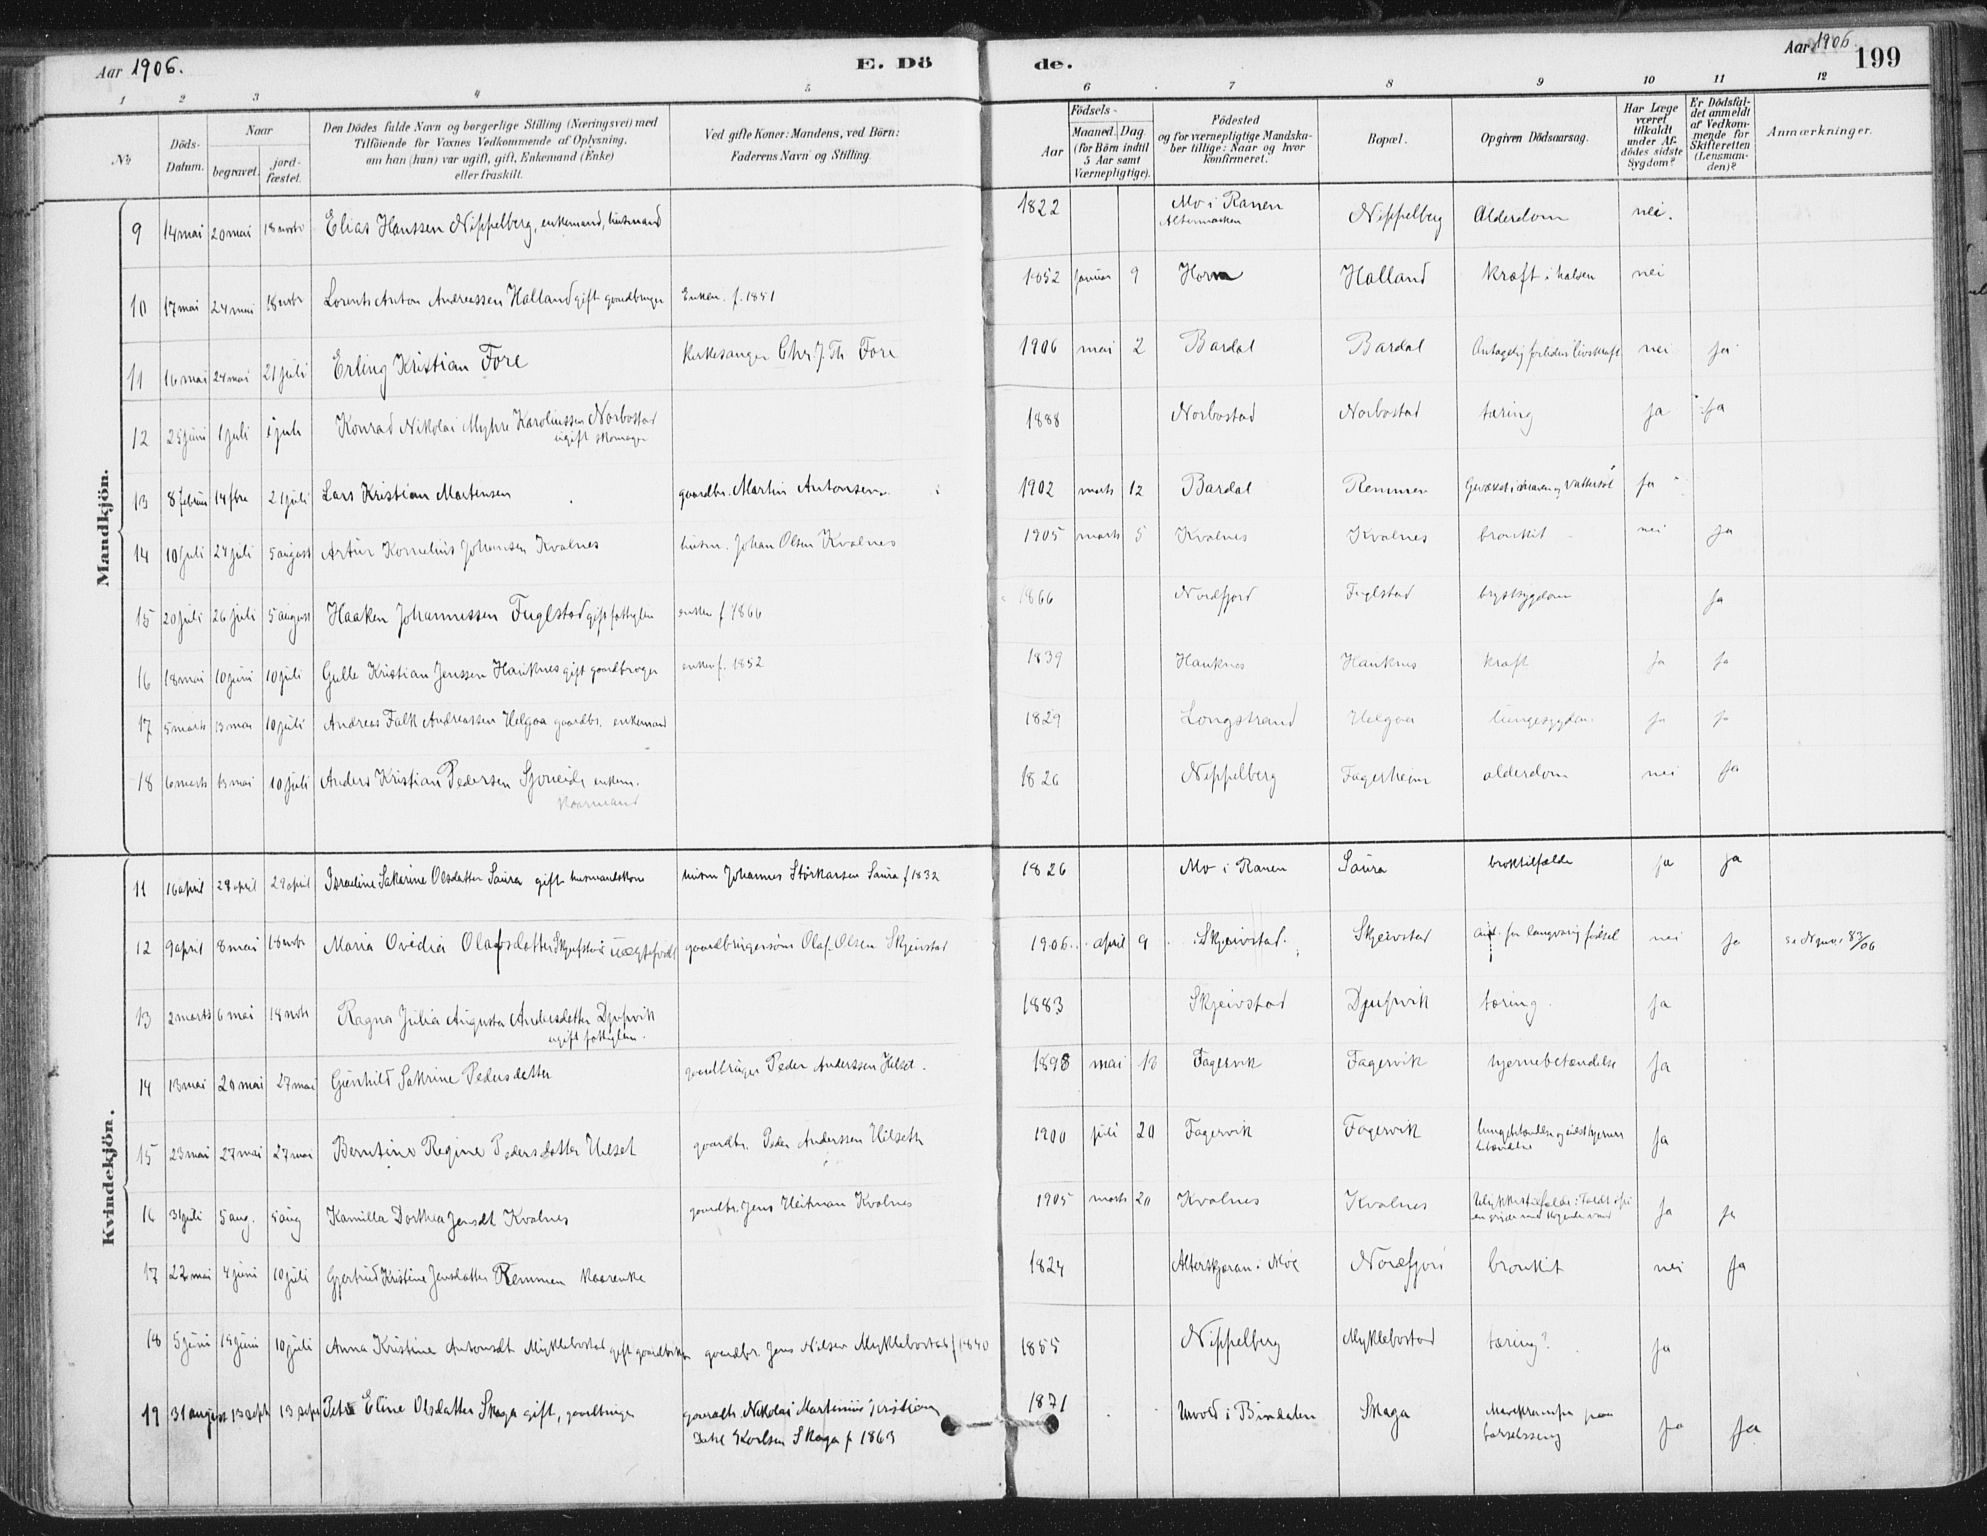 Aar 1906. E. Dö de. Aar 1906. 199
1 2 3 4 5 6 7 8 9 10 11 12
No
Döds-Datum.
Naar
begravet.
jord-fæstet.
Den Dödes fulde Navn og borgerlige Stilling (Næringsvei) med
Tilföiende for Voxnes Vedkommende af Oplysning,
om han (hun) var ugift, gift, Enkemand (Enke)
eller fraskilt.
Ved gifte Koner: Mandens, ved Börn:
Faderens Navn og Stilling
Födsels-
Aar
Maaned. Dag.
(for Börn indtil
5 Aar samt
Værnepligtige).
Födested
og for værnepligtige Mandska-
ber tillige: Naar og hvor
konfirmeret.
Bopæl.
Opgiven Dödsaarsag.
Har Læge
været
tilkaldt
under Af-
dödes sidste
Sygdom?
Er Dödsfal-
det anmeldt
af Vedkom-
mende for
Skifteretten
(Lensman-
den)?
Anmærkninger.
Mandkjön.
9 14 mai 20 mai Elias Hanssen Nippelberg, enkemand, husmand 1822 Mo i Ranen Nippelberg Alderdom nei.
10 17 mai 24 mai Lorents Anton Andreassen Halland gift gaardbruger Enken. f. 1851 1852 januar 9 Horn Halland kræft i halsen nei
11 16 mai 24 mai 21 juli Erling Kristian Fore Kirkesanger Chr. J. Th Fore 1906 mai 2 Bardal Bardal Antagelig forliden livskraft nei ja
12 25 juni 1 juli 1 juli Konrad Nikolai Myhre Karoliussen Norbostad
ugift skomager 1888 Norbostad Norbostad tæring ja ja
13 8 februar 14 fbre 21 juli Lars Kristian Martensen gaardbr. Martin Antonsen 1902 marts 12 Bardal Remmen ja
14 10 juli 24 juli 5 august Artur Kornelius Johansen Kvalnes husm. Johan Olsen Kvalnes 1905 marts 5 Kvalnes Kvalnes bronkit nei ja
15 20 juli 26 juli 5 august Haaken Johannessen Fuglstad gift fattiglem enken f 1866 1866 Nordfjord Fuglstad brystsygdom ja
16 18 mai 10 juni 10 juli Gulle Kristian Jenssen Hauknes gift gaardbruger enken f. 1852 1839 Hauknes Hauknes kræft ja ja
17 5 marts 13 mai 10 juli Andreas Falk Andreassen Helgaa gaardbr. enkemand 1829 Longstrand Helgaa lungesygdom ja ja
18 6 marts 13 mai 10 juli Anders Kristian Pedersen Sjoneide enkem.
kaarmand 1826 Nippelberg Fagerheim alderdom nei ja
Kvindekjön.
11 16 april 29 april 29 april Israeline Sakarine Olsdatter Saura gift husmandskone husm Johannes Störkarsen Saura f 1832 1826 Mo i Ranen Saura broktilfælde ja ja
12 9 april 8 mai Maria Ovidia Olafsdatter Skjeivstad uægtefødt gaardbrugersøn Olaf Olsen Skjeivstad 1906 april 9 Skjeivstad Skjeivstad for langvarig fødsel nei ja 83/06
13 2 marts 6 mai Ragna Julia Augusta Andersdatter Djupvik
ugift fattiglem. 1883 Skjeivstad Djupvik tæring ja
14 13 mai 20 mai 27 mai Gunhild Sakrine Pedersdatter gaardbruger Peder Anderssen Hilset. 1898 mai Fagervik Fagervik hjernebetændelse ja
15 23 mai 27 mai 27 mai Berntine Regine Pedersdatter Hilset gaardbr. Peder Anderssen Hilseth 1900 juli 20 Fagervik Fagervik lungebetændelse og sidst hjerne
betændelse ja
16 31 juli 5 aug. 5 aug Kamilla Dorthea Jensdt Kvalnes gaardbr. Jens Heitman Kvalnes 1905 marts 20 Kvalnes Kvalnes Ulykkestilfælde: Faldt i
en gryde med kogende vand ja ja
17 22 mai 4 juni 10 juli Gjertrud Kristine Jensdatter Remmen kaarenke 1824 Alterskjæran i Mo Nordfjord bronkit nei ja
18 5 juni 14 juni 10 juli Anna Kristine Antonsdt Myklebostad gift gaardbr. Jens Nilsen Myklebostad f 1840 1855 Nippelberg Myklebostad tæring? ja
19 31 august 13 sept 13 sept Petra Eline Olsdatter Skaga gift, gaardbruger Nikolai Martinius Kristian
Dahl Karlsen Skaga f 1863 1871 i Bindalen Skaga
barselsseng ja ja